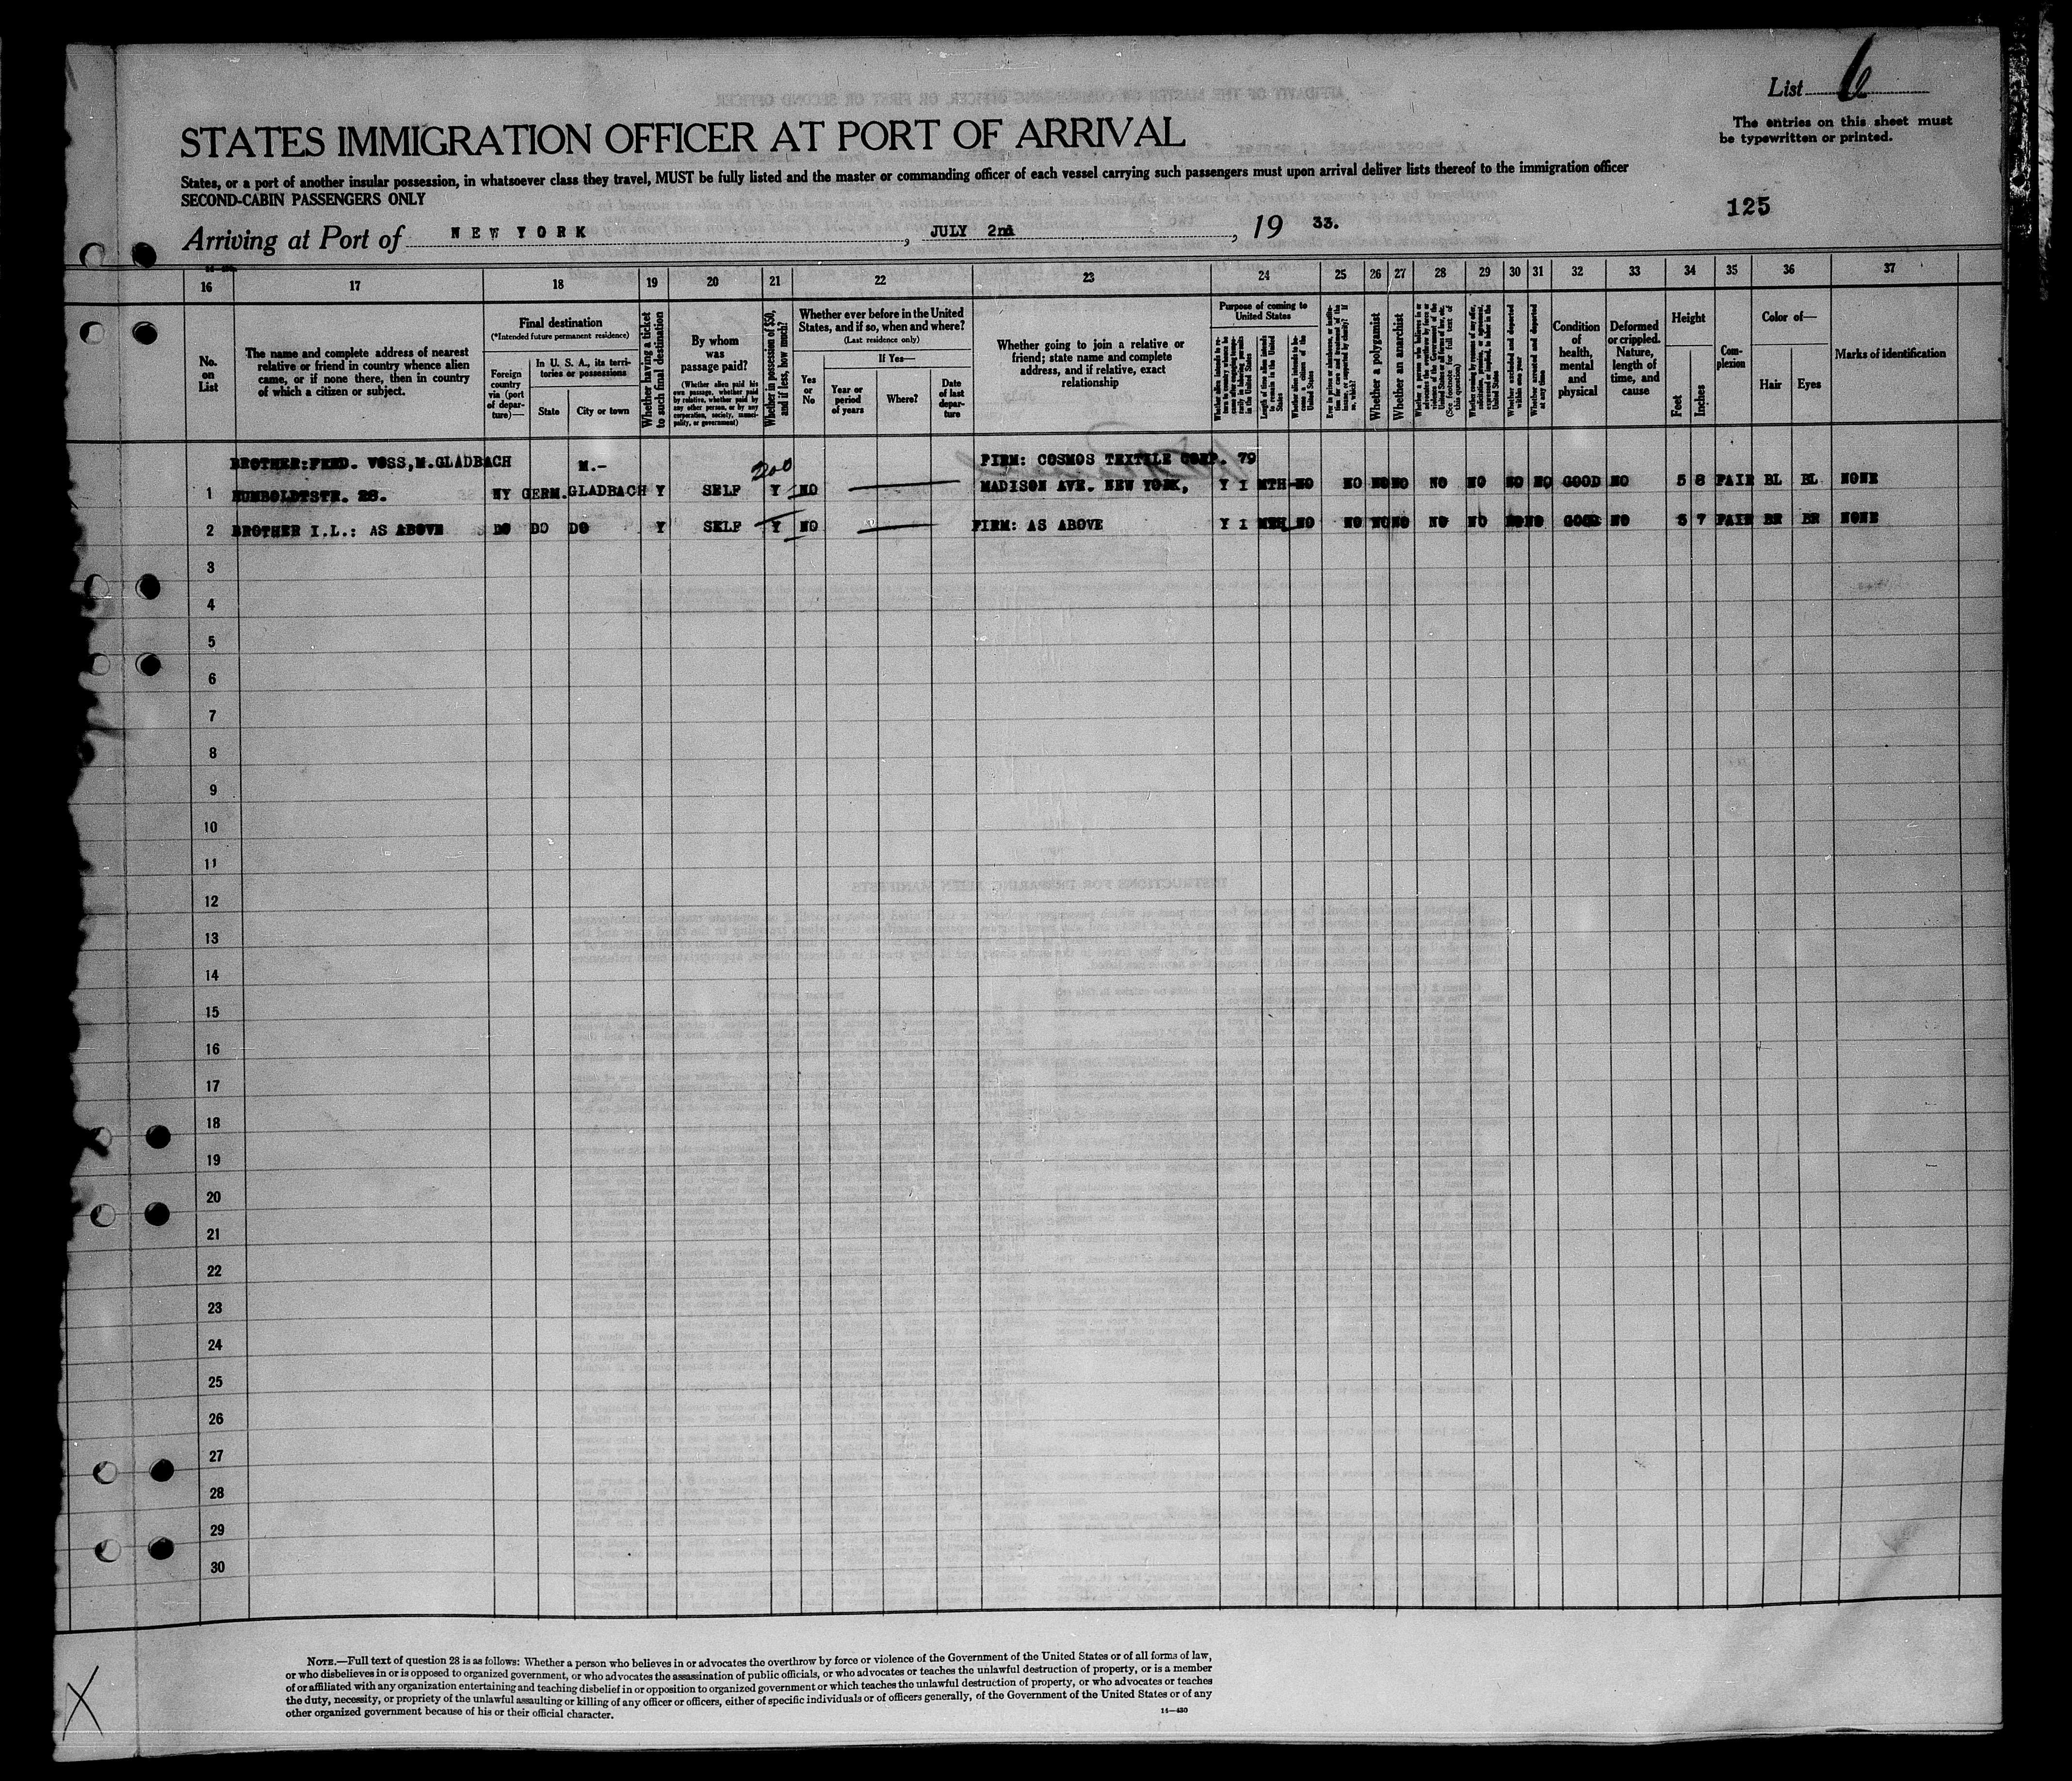 List 6
The entries on this sheet must
be typewritten or printed.
STATES IMMIGRATION OFFICER AT PORT OF ARRIVAL
States, or a port of another insular possession, in whatsoever class they travel, MUST be fully listed and the master or commanding officer of each vessel carrying such passengers must upon arrival deliver lists thereof to the immigration officer
SECOND-CABIN PASSENGERS ONLY
125
Arriving at Port of NEW YORK, JULY 2nd, 19 33.
16 17 18 19 20 21 22 23 24 25 26 27 28 29 30 31 32 33 34 35 36 37
No.
on
List
The name and complete address of nearest
relative or friend in country whence alien
came, or if none there, then in country
of which a citizen or subject.
Final destination
(*Intended future permanent residence)
Foreign
country
via (port
of depar-
ture)—
In U. S. A., its terri-
tories or possessions
State
City or town
Whether having a ticket
to such final destination
By whom
was
passage paid?
(Whether alien paid his
own passage, whether paid
by relative, whether paid by
any other person, or by any
corporation, society, munici-
pality, or government)
Whether in possession of $50,
and if less, how much?
Whether ever before in the United
States, and if so, when and where?
(Last residence only)
Yes
or
No
If Yes—
Year or
period
of years
Where?
Date
of last
depar-
ture
Whether going to join a relative or
friend; state name and complete
address, and if relative, exact
relationship
Purpose of coming to
United States
Length of time alien intends
to remain in the United
States
Whether alien intends to be-
come a citizen of the
United States
Whether a polygamist
Whether an anarchist
(See footnote for full text of
this question)
Whether excluded and deported
within one year
Whether arrested and deported
at any time
Condition
of
health,
mental
and
physical
Deformed
or crippled.
Nature,
length of
time, and
cause
Height
Feet
Inches
Com-
plexion
Color of—
Hair
Eyes
Marks of identification
BROTHER:FERD. VOSS,M.GLADBACH M.- 200 FIRM: COSMOS TEXTILE CORP. 79
1 HUMBOLDTSTR. 28. NY GERM. GLADBACH Y SELF Y NO MADISON AVE. NEW YORK, Y 1 MTH NO NO NO NO NO NO NO NO GOOD NO 5 8 FAIR BL BL NONE
2 BROTHER I.L.: AS ABOVE DO DO DO Y SELF Y NO FIRM: AS ABOVE Y 1 MTH NO NO NO NO NO NO NO NO GOOD NO 5 7 FAIR BR BR NONE
3
4
5
6
7
8
9
10
11
12
13
14
15
16
17
18
19
20
21
22
23
24
25
26
27
28
29
30
NOTE.—Full text of question 28 is as follows: Whether a person who believes in or advocates the overthrow by force or violence of the Government of the United States or of all forms of law,
or who disbelieves in or is opposed to organized government, or who advocates the assassination of public officials, or who advocates or teaches the unlawful destruction of property, or is a member
of or affiliated with any organization entertaining and teaching disbelief in or opposition to organized government or which teaches the unlawful destruction of property, or who advocates or teaches
the duty, necessity, or propriety of the unlawful assaulting or killing of any officer or officers, either of specific individuals or of officers generally, of the Government of the United States or of any
other organized government because of his or their official character.
14—430
X